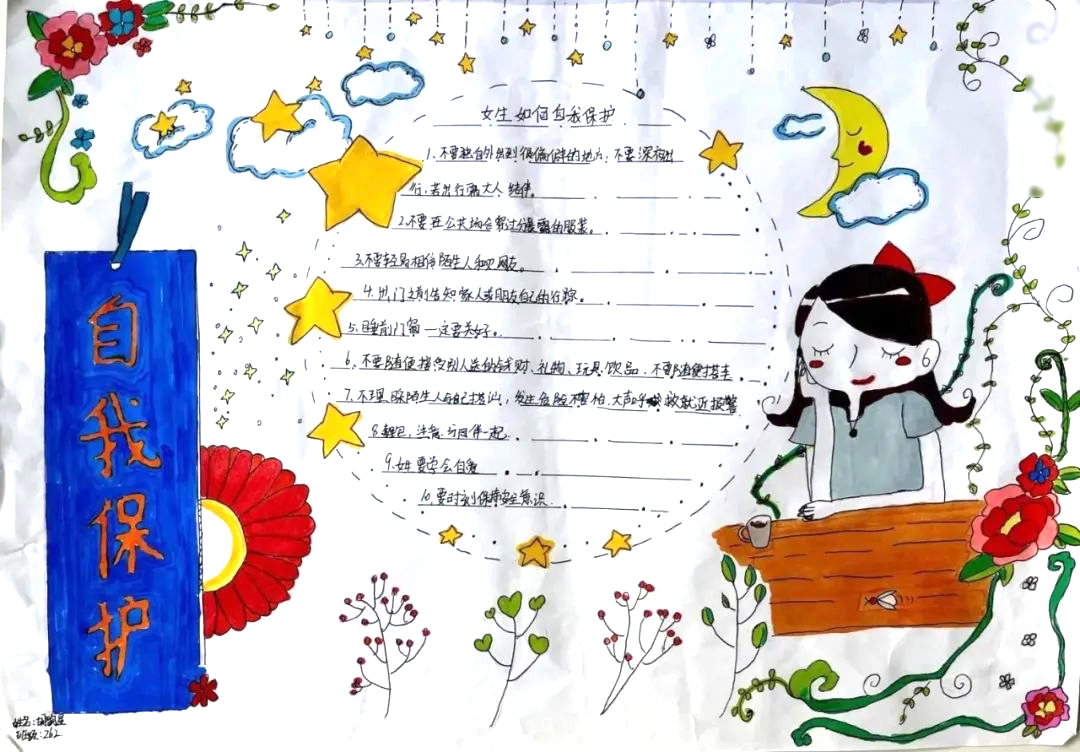 自我保护
女生如何自我保护
1.不要独自外出到很偏僻的地方,不要深夜出
行,若出行需大人结伴。
2.不要在公共场合穿过分暴露的服装。
3.不要轻易相信陌生人和网友。
4.出门之前告知家人或朋友自己的行踪。
5.睡前门窗一定要关好。
6.不要随便接受别人送的钱财、礼物、玩具、饮品,不要随便搭车
7.不理睬陌生人与自己搭讪,发生危险不害怕,大声呼救就近报警
8.注意,与同伴一起.
9.要学会自爱
10.要时刻保持安全意识.
姓名:
班级:262